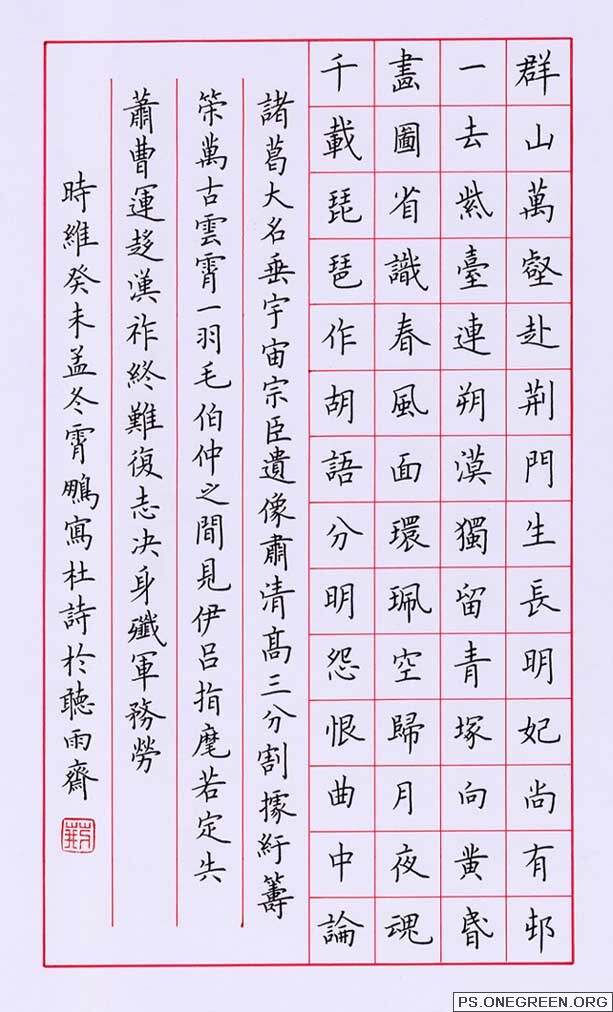 群山萬壑赴荆門生長明妃尚有邨
一去紫臺連朔漠獨留青塚向黄昏
畫圖省識春風面環珮空歸月夜魂
千載琵琶作胡語分明怨恨曲中論
諸葛大名垂宇宙宗臣遺像肅清高三分割據紆籌
策萬古雲霄一羽毛伯仲之間見伊吕指麾若定失
蕭曹運趍漢祚終難復志决身殲軍務勞
時維癸未孟冬霄鵬寫杜詩於聽雨齋
PS.ONEGREEN.ORG